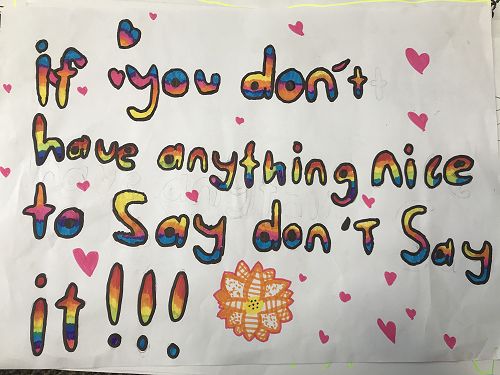 if you don't
have anything nice
to Say don't Say
it!!!